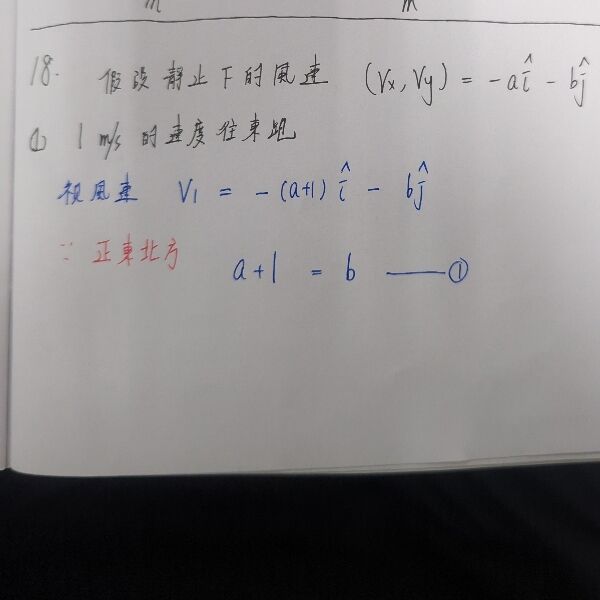 m m
18. 假設靜止下的風速 (Vx, Vy) = -aî - bĵ
① 1 m/s 的速度往東跑
視風速 V1 = -(a+1) î - bĵ
∵ 正東北方 a+1 = b ——①